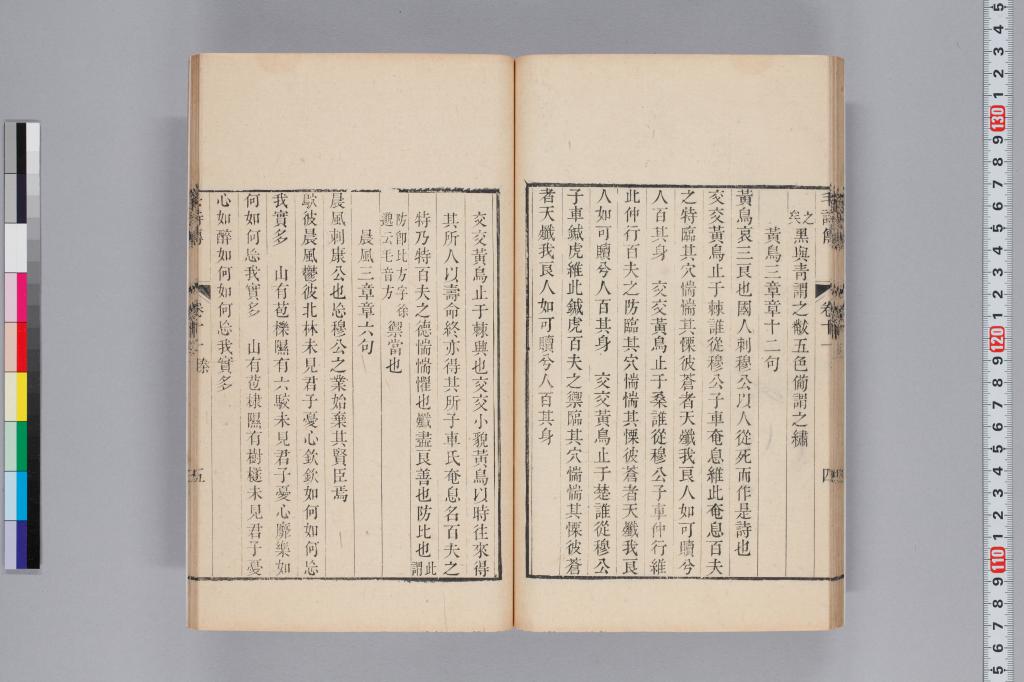 之矣黑與青謂之黻五色備謂之繡
黃鳥三章章十二句
黃鳥哀三良也國人刺穆公以人從死而作是詩也
交交黃鳥止于棘誰從穆公子車奄息維此奄息百夫
之特臨其穴惴惴其慄彼蒼者天殲我良人如可贖兮
人百其身 交交黃鳥止于桑誰從穆公子車仲行維
此仲行百夫之防臨其穴惴惴其慄彼蒼者天殲我良
人如可贖兮人百其身 交交黃鳥止于楚誰從穆公
子車鍼虎維此鍼虎百夫之禦臨其穴惴惴其慄彼蒼
者天殲我良人如可贖兮人百其身
交交黃鳥止于棘興也交交小貌黃鳥以時往來得
其所人以壽命終亦得其所子車氏奄息名百夫之
特乃特百夫之德惴惴懼也殲盡良善也防比也此謂
防卽比方字徐邈云毛音方禦當也
晨風三章章六句
晨風刺康公也忘穆公之業始棄其賢臣焉
鴥彼晨風鬱彼北林未見君子憂心欽欽如何如何忘
我實多 山有苞櫟隰有六駮未見君子憂心靡樂如
何如何忘我實多 山有苞棣隰有樹檖未見君子憂
心如醉如何如何忘我實多
毛詩傳
卷十一
四
五
130
120
110